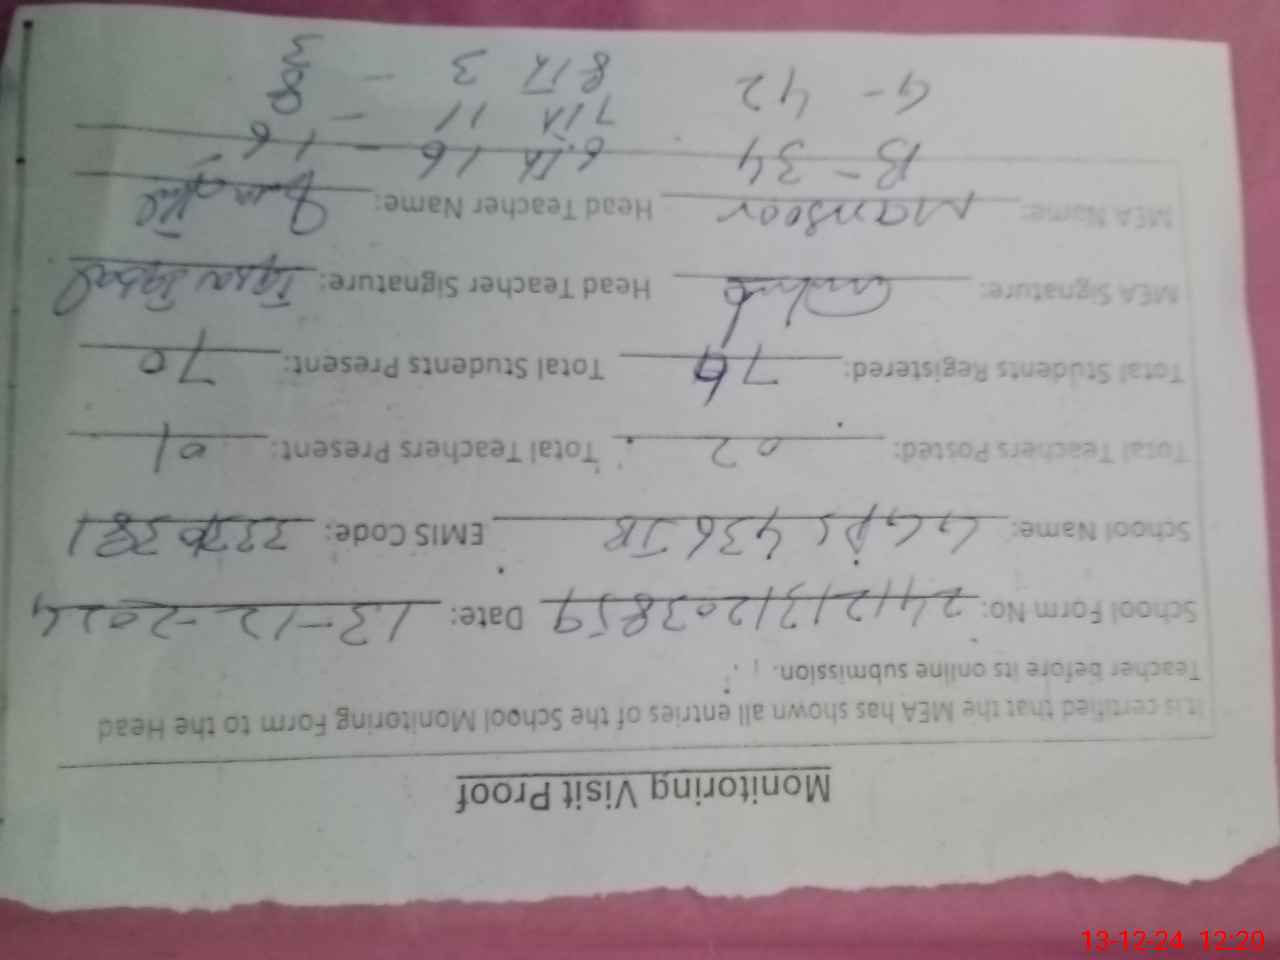 Monitoring Visit Proof
It is certified that the MEA has shown all entries of the School Monitoring Form to the Head
Teacher before its online submission.
School Form No: 241213121203859 Date: 13-12-2024
School Name: GGPS 436 JB EMIS Code:
Total Teachers Posted: 02 Total Teachers Present: 01
Total Students Registered: 76 Total Students Present: 70
MEA Signature: Head Teacher Signature: Iqra Iqbal
MEA Name: Mansoor Head Teacher Name:
B- 34 6th 16 - 16
G- 42 7th 11 - 8
8th 3 - 3
13-12-24 12:20